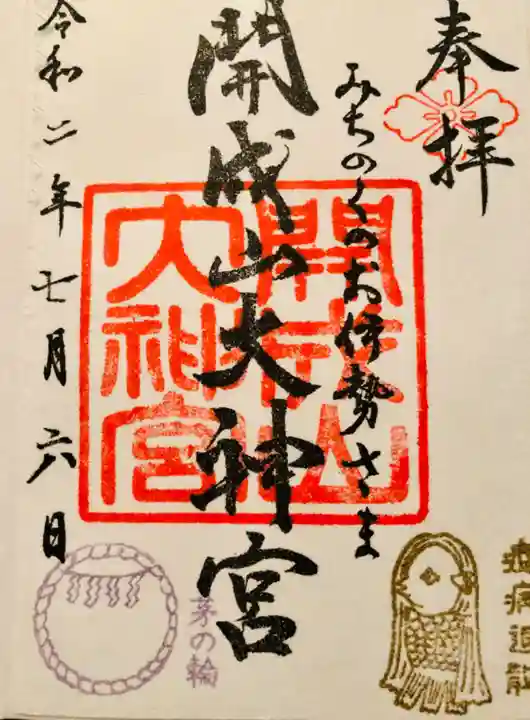 奉拝
みちのくのお伊勢さま
開成山大神宮
開成山
大神宮
令和二年七月六日
茅の輪
疫病退散